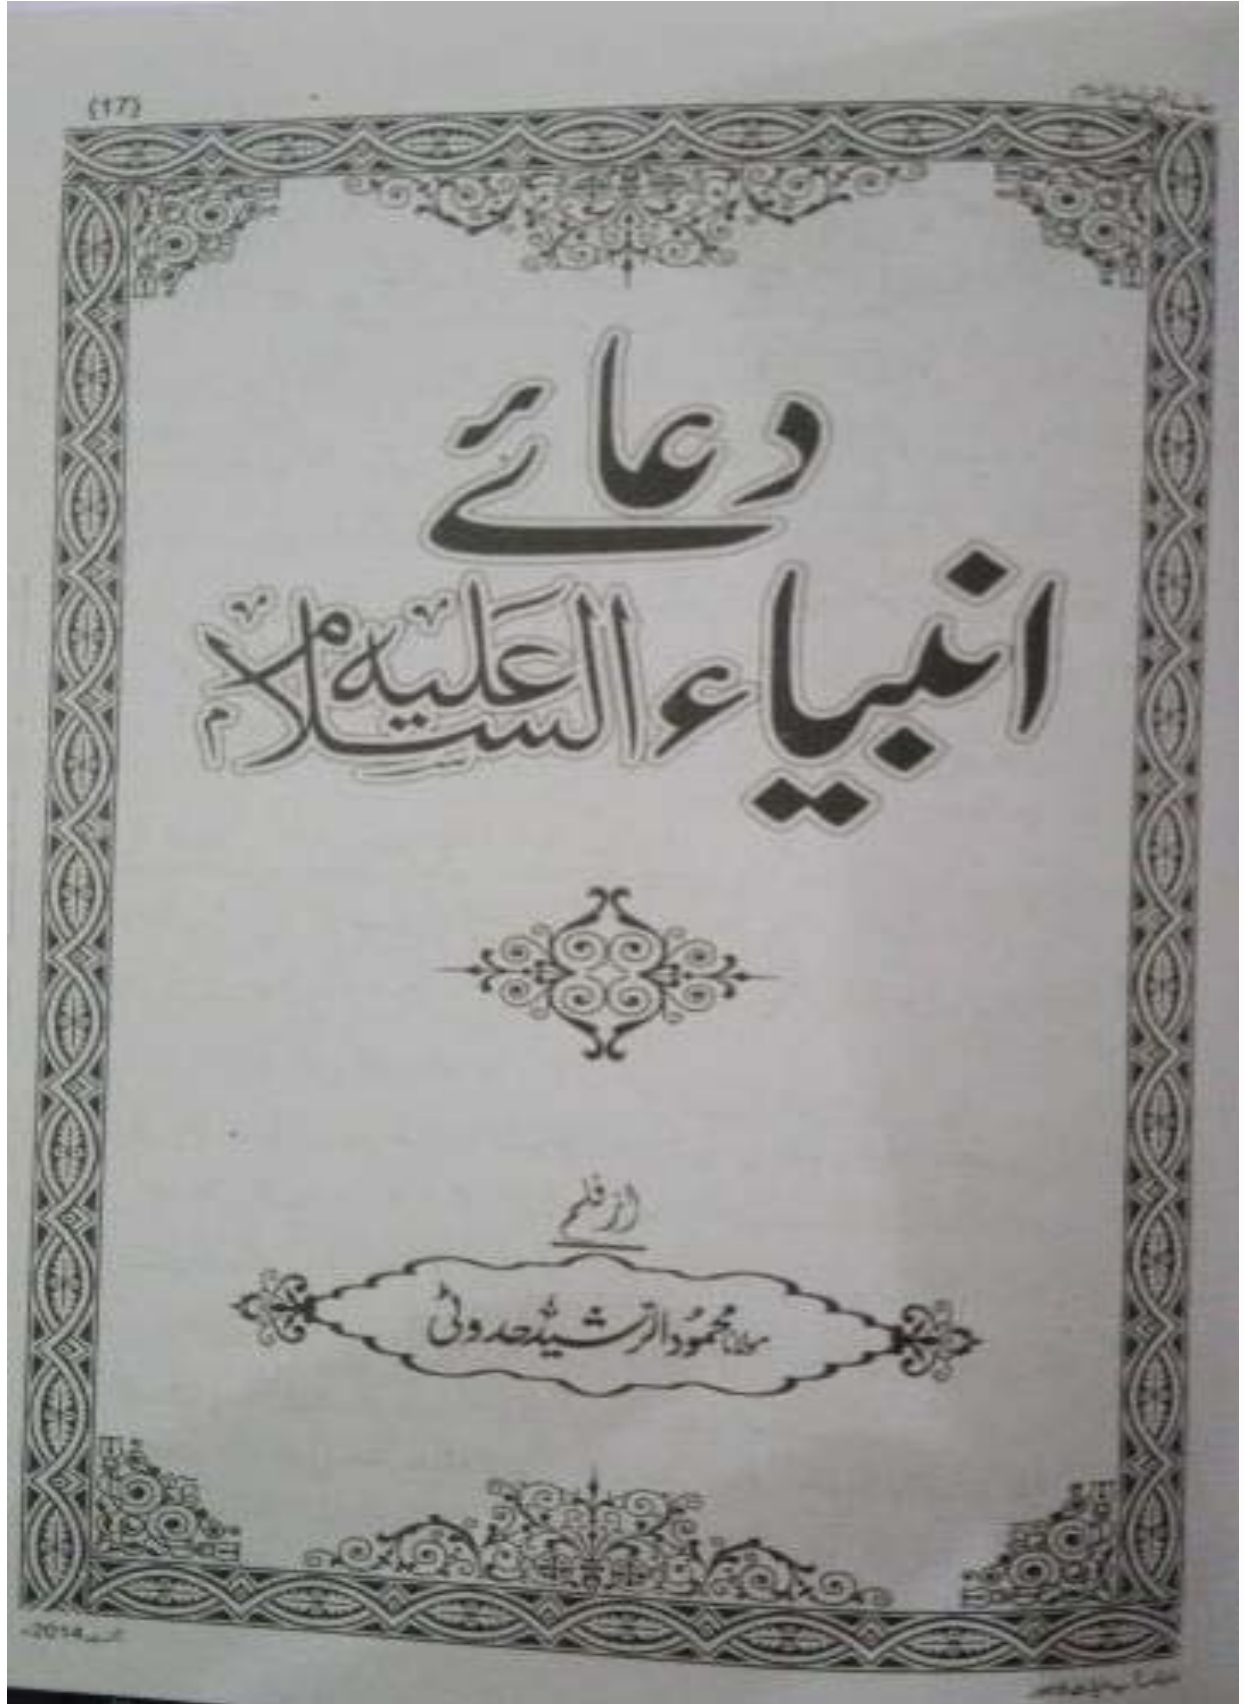 {17}
دعائے
انبیاء علیہ السلام
از قلم
مولانا محمود الرشید حدوٹی
اگست 2014ء